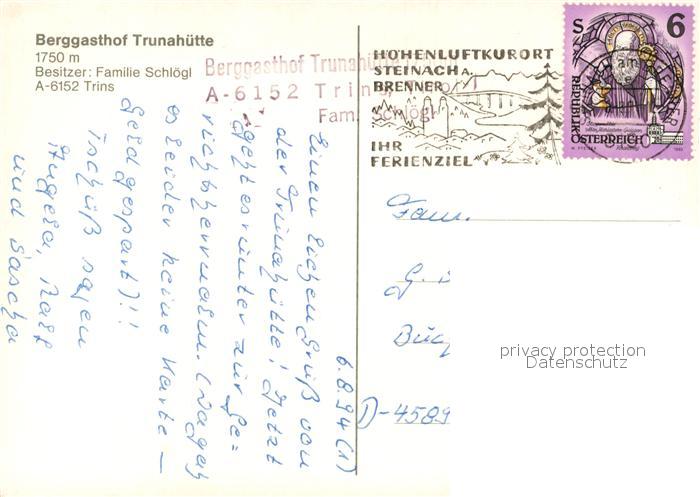 Berggasthof Trunahütte
1750 m
Besitzer: Familie Schlögl
A-6152 Trins
Berggasthof Trunahütte
A-6152 Trins, Tirol
Fam. Schlögl
HÖHENLUFTKURORT
STEINACH A.
BRENNER
IHR
FERIENZIEL
S 6
REPUBLIK
ÖSTERREICH
6.8.94 (1)
Einen lieben Gruß von
der Trunahütte! Jetzt
geht es runter zur Ge=
richtsherrnalm. (Da gab
es leider keine Karte –
Geld gespart)!!
Tschüß sagen
Angela, Ralf
und Sascha
Fam.
G.
D-4589
privacy protection
Datenschutz